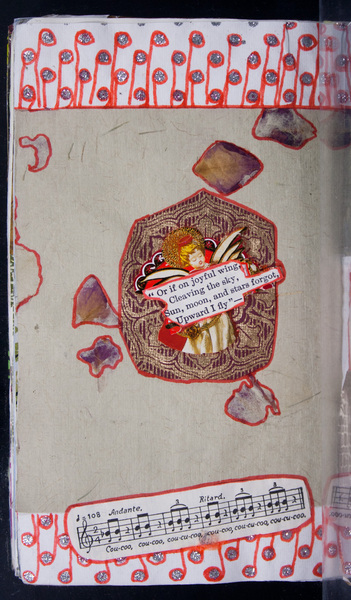 “Or if on joyful wing,
Cleaving the sky,
Sun, moon, and stars forgot,
Upward I fly”—
♩= 108 Andante. Ritard.
3 3 3
Cou-coo, cou-coo, cou-coo, cou-cu-coo, cou-cu-coo, cou-cu-coo.